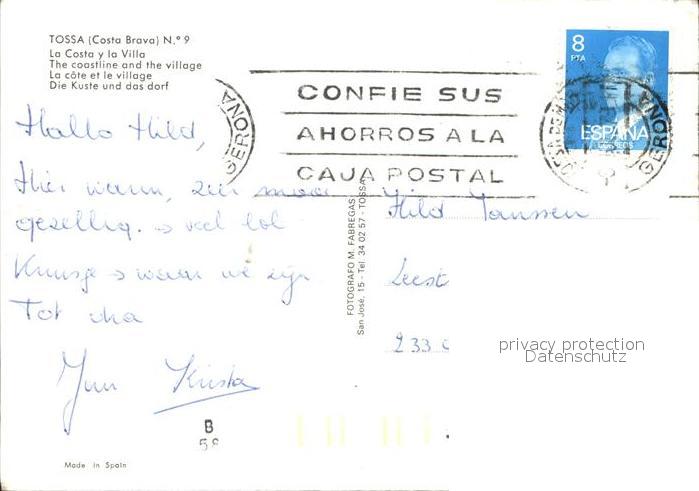 TOSSA (Costa Brava) N.º 9
La Costa y la Villa
The coastline and the village
La côte et le village
Die Kuste und das dorf
8
PTA
ESPAÑA
CORREOS
GERONA
CONFIE SUS
AHORROS A LA
CAJA POSTAL
GERONA
Hallo Hild,
Hier warm, zeer mooi
gezellig. → veel lol
Kruisje → waar we zijn
Tot
Krista
FOTOGRAFO M. FABREGAS
San José, 15 - Tel. 34 02 57 - TOSSA
Hild Janssen
Leest
233
privacy protection
Datenschutz
B
58
Made in Spain